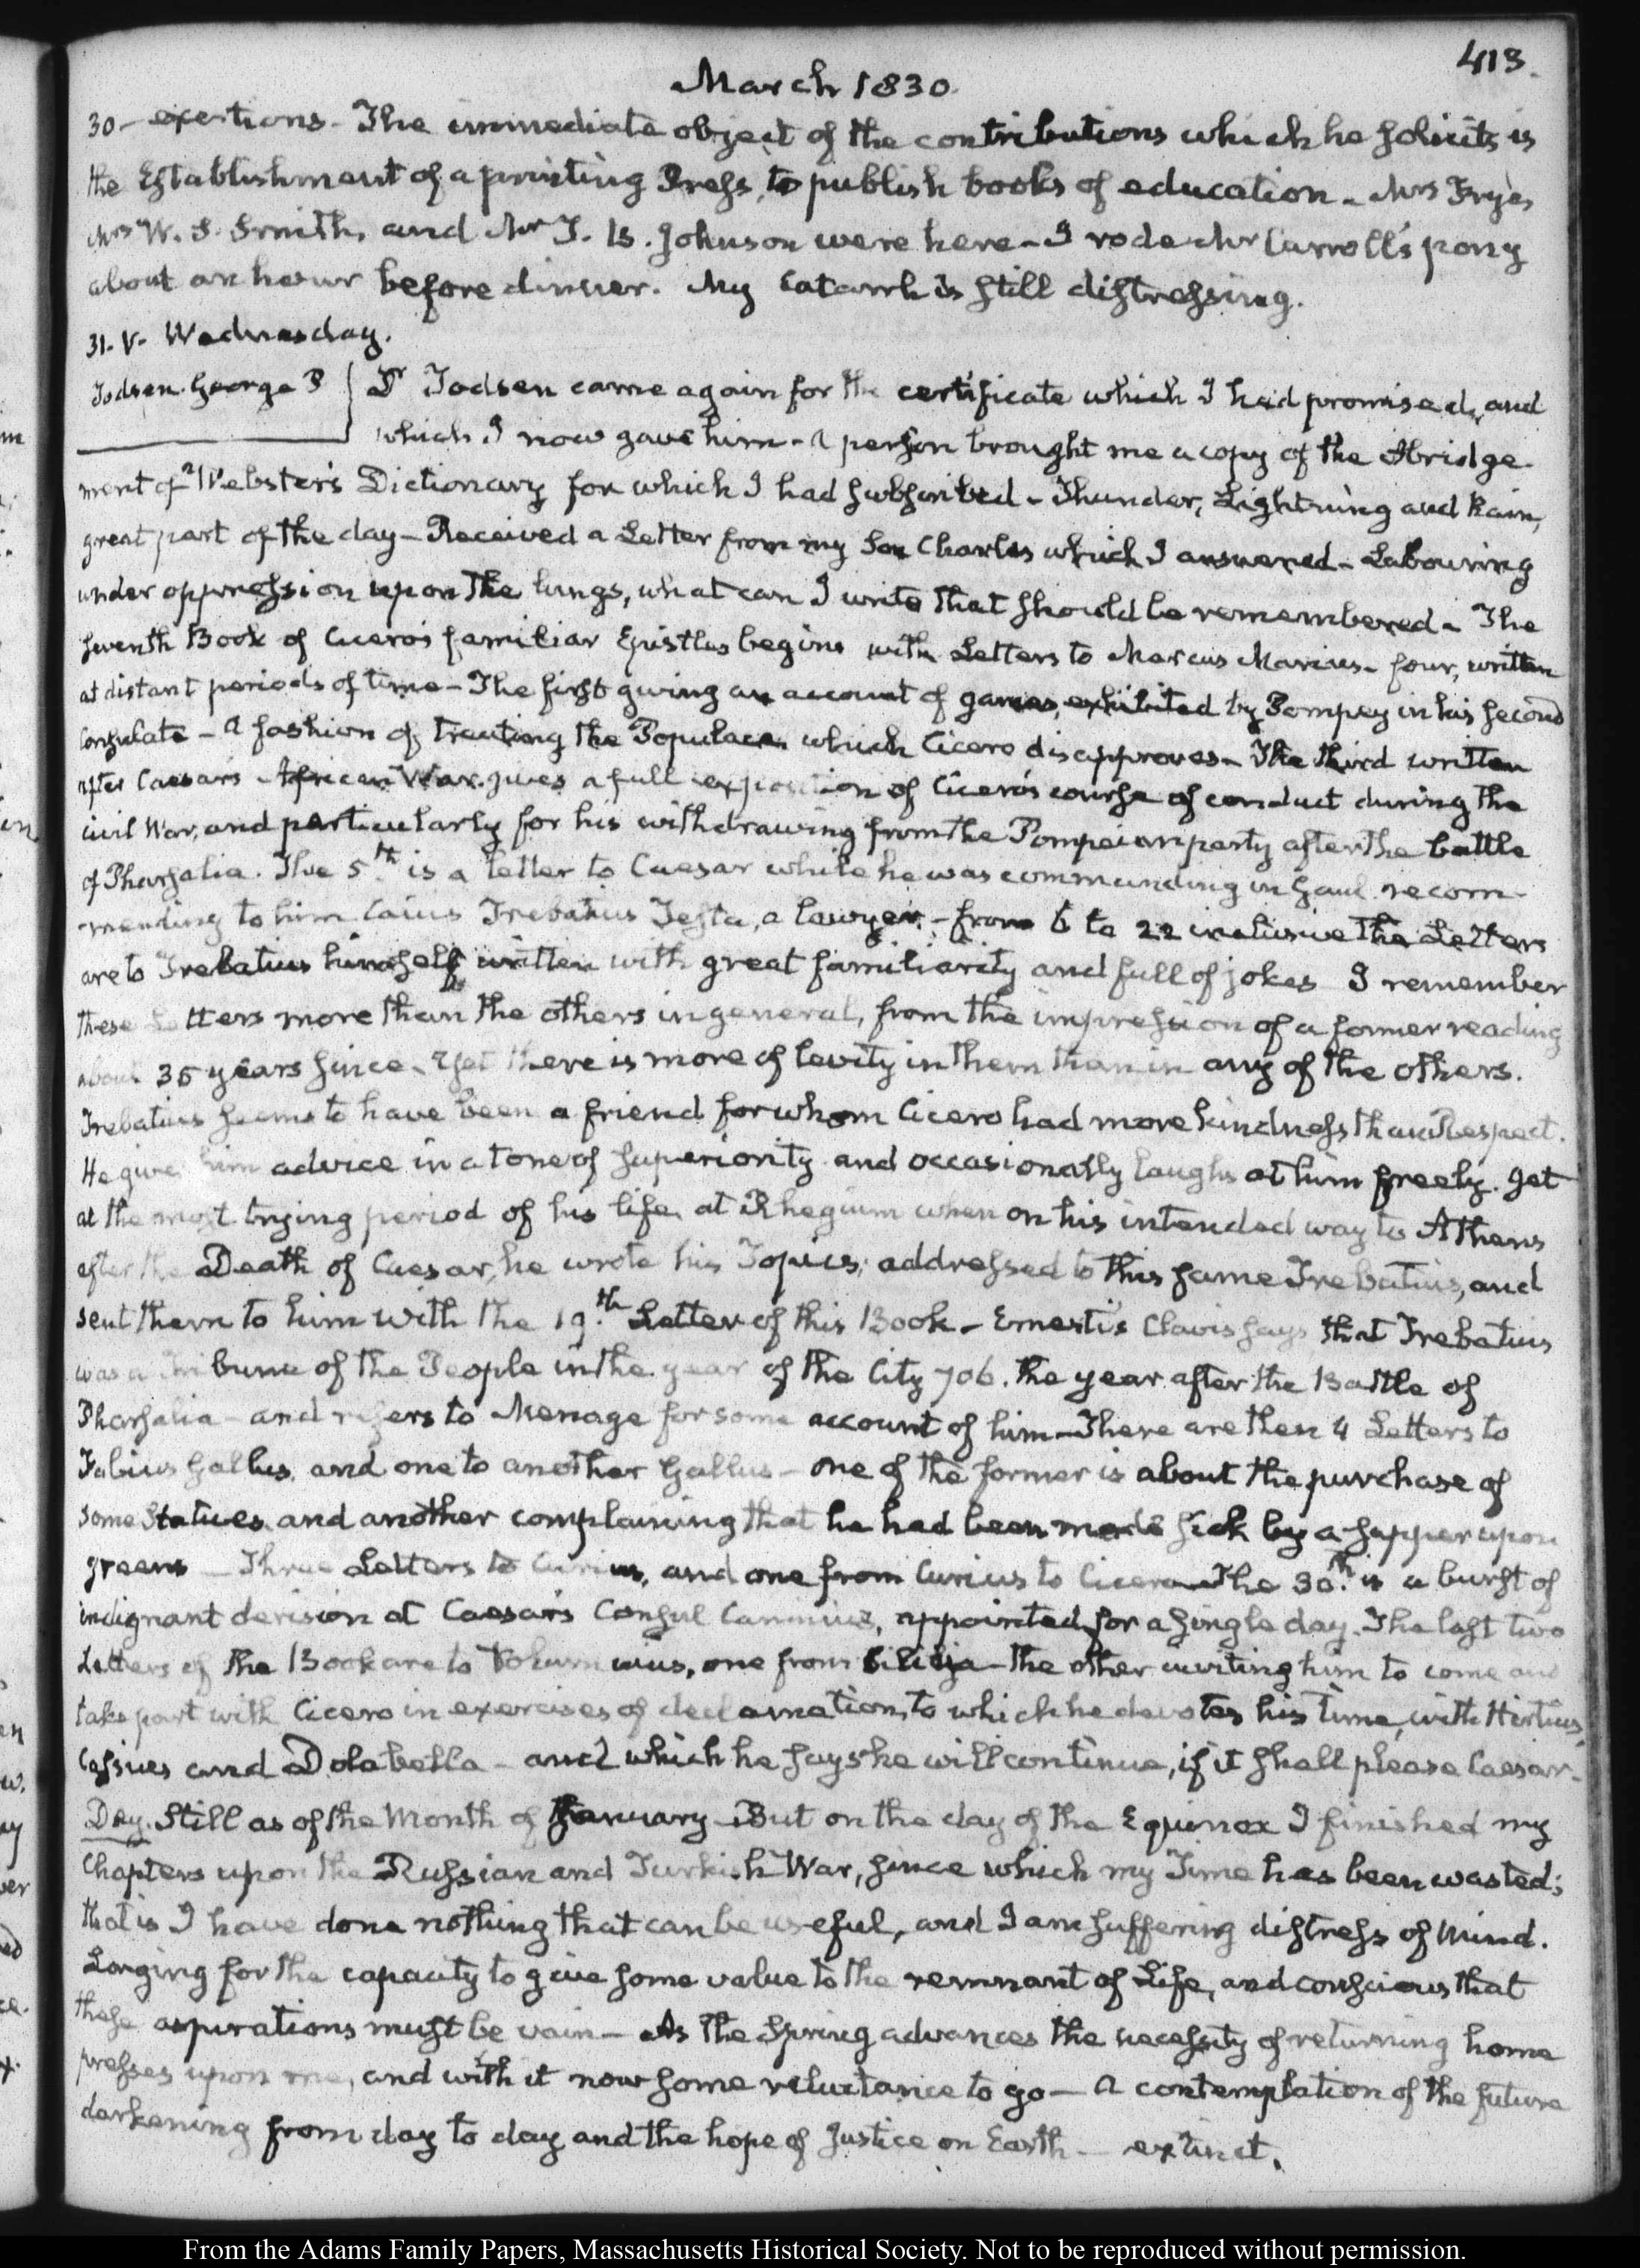 413.
March 1830.
30 – exertions – The immediate object of the contributions which he solicits is
the Establishment of a printing Press, to publish books of education – Mrs Frye,
Mrs W. S. Smith, and Mr T. B. Johnson were here – I rode Mr Carroll's pony
about an hour before dinner. My Catarrh is still distressing.
31. V. Wednesday.
Todsen. George P
Dr Todsen came again for the certificate which I had promised, and
which I now gave him – A person brought me a copy of the Abridge-
ment of Webster's Dictionary for which I had subscribed – Thunder, Lightning and Rain,
great part of the day – Received a Letter from my Son Charles which I answered – Labouring
under oppression upon the lungs, what can I write that should be remembered – The
seventh Book of Cicero's familiar Epistles begins with Letters to Marcus Marius – four, written
at distant periods of time – The first giving an account of games, exhibited by Pompey in his second
Consulate – A fashion of treating the Populace which Cicero disapproves – The third written
after Caesar's African War. gives a full exposition of Cicero's course of conduct during the
civil War, and particularly for his withdrawing from the Pompeian party after the battle
of Pharsalia. The 5th is a letter to Caesar while he was commanding in Gaul recom-
-mending to him Caius Trebatius Testa, a lawyer, – from 6 to 22 inclusive the Letters
are to Trebatius himself written with great familiarity and full of jokes I remember
these Letters more than the others in general, from the impression of a former reading
about 35 years since. Yet there is more of levity in them than in any of the others.
Trebatius seems to have been a friend for whom Cicero had more kindness than Respect.
He give him advice in a tone of superiority and occasionally laughs at him freely. Yet
at the most trying period of his life at Rhegium when on his intended way to Athens
after the Death of Caesar, he wrote his Topics, addressed to this same Trebatius, and
sent them to him with the 19th Letter of this Book – Ernesti's Clavis says that Trebatius
was a Tribune of the People in the year of the City 706. the year after the Battle of
Pharsalia – and refers to Menage for some account of him – There are then 4 Letters to
Fabius Gallus, and one to another Gallus – one of the former is about the purchase of
some Statues and another complaining that he had been made sick by a supper upon
greens – Three Letters to Curius, and one from Curius to Cicero – The 30th is a burst of
indignant derision at Caesar's Consul Caninius, appointed for a single day. The last two
Letters of the Book are to Volumnius, one from Cilicia – the other inviting him to come and
take part with Cicero in exercises of declamation, to which he devotes his time, with Hirtius,
Cassius and Dolabella – and which he says he will continue, if it shall please Caesar.
Day. Still as of the Month of January – But on the day of the Equinox I finished my
Chapters upon the Russian and Turkish War, since which my Time has been wasted;
that is I have done nothing that can be useful, and I am suffering distress of mind.
Longing for the capacity to give some value to the remnant of Life, and conscious that
these aspirations must be vain – As the Spring advances the necessity of returning home
presses upon me, and with it now some reluctance to go – A contemplation of the future
darkening from day to day and the hope of Justice on Earth – extinct.
From the Adams Family Papers, Massachusetts Historical Society. Not to be reproduced without permission.